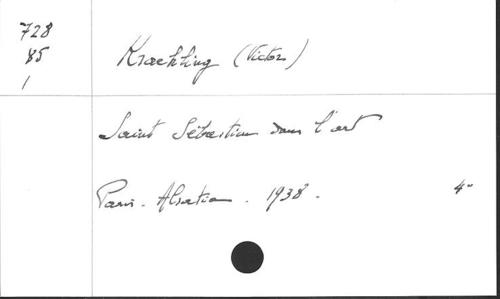 728
85
1
Kraehling (Victor)
Saint Sébastian dans l'art
Paris - Alsatia - 1938 - 4°